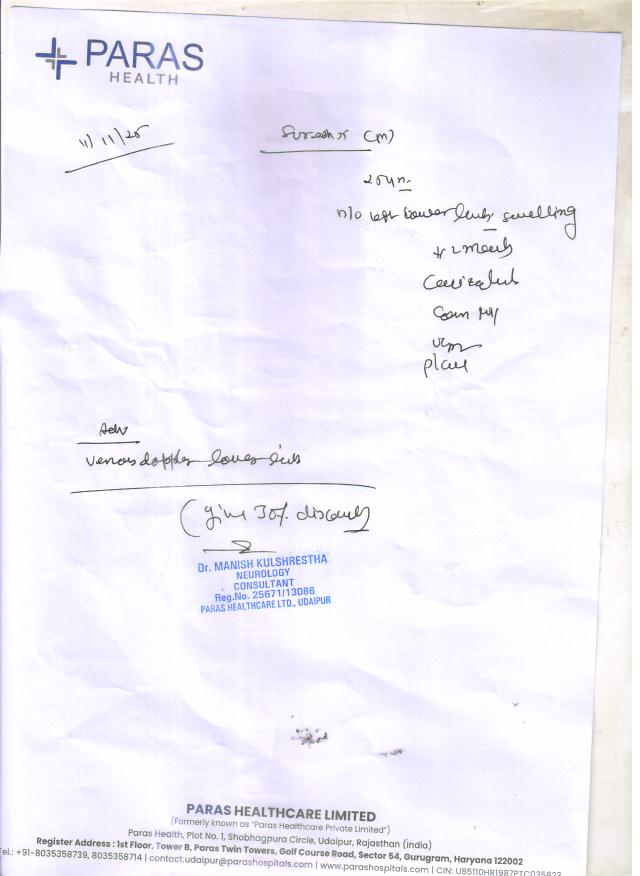 PARAS
HEALTH
11/11/25
Suresh (m)
H/O left lower limb swelling
Adv
Venous doppler lower limb
(give 30% discount)
Dr. MANISH KULSHRESTHA
NEUROLOGY
CONSULTANT
Reg.No. 25671/13086
PARAS HEALTHCARE LTD., UDAIPUR
PARAS HEALTHCARE LIMITED
(Formerly known as "Paras Healthcare Private Limited")
Paras Health, Plot No. 1, Shobhagpura Circle, Udaipur, Rajasthan (india)
Register Address : 1st Floor, Tower B, Paras Twin Towers, Golf Course Road, Sector 54, Gurugram, Haryana 122002
Tel.: +91-8035358739, 8035358714 | contact.udaipur@parashospitals.com | www.parashospitals.com | CIN: U85110HR1987PTC035823